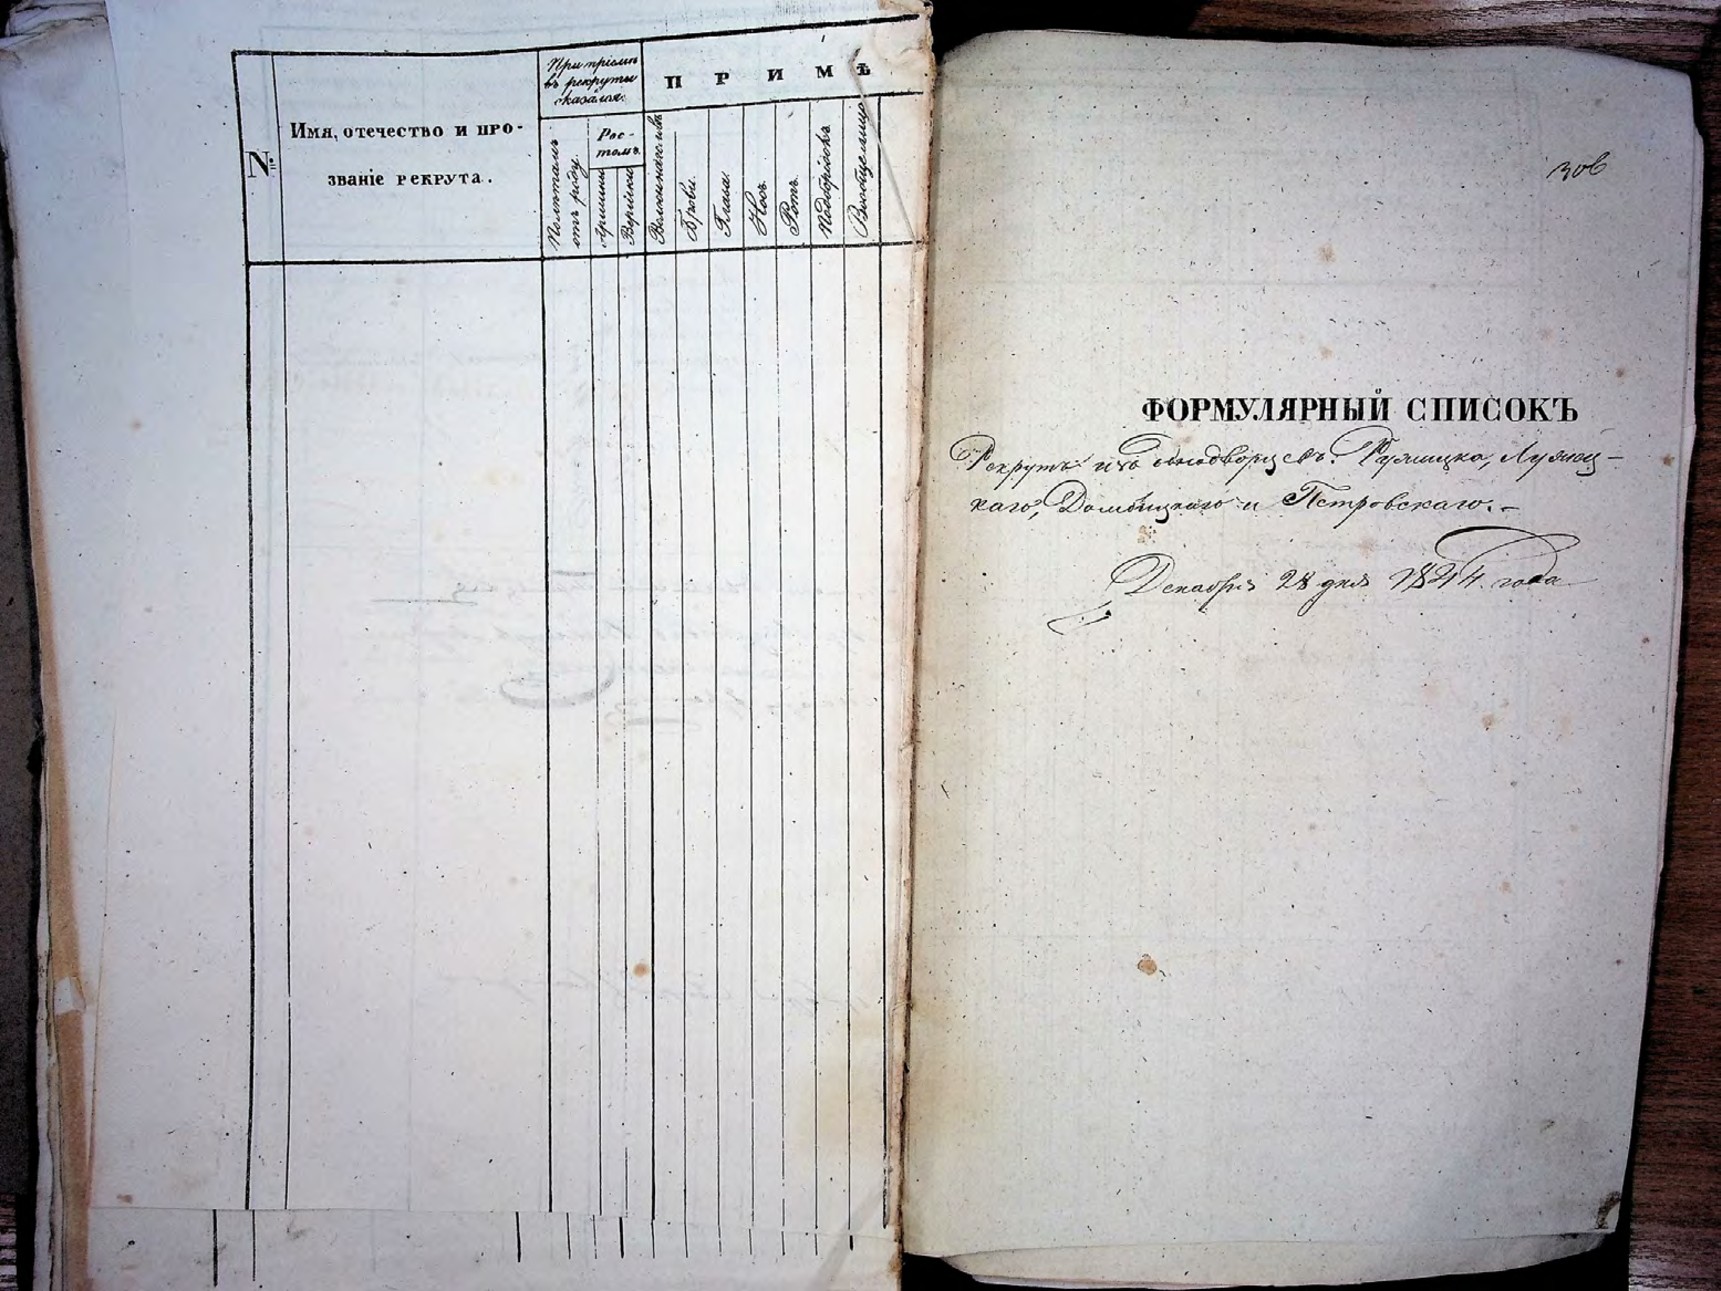 №
Имя, отечество и про-
званіе рекрута.
При пріемѣ
въ рекруты
сказался:
Полѣтамъ
отъ роду.
Рос-
томъ.
Аршинъ
Вершки
П Р И М Ѣ
Брови.
Глаза.
Носъ.
Ротъ.
Подбородокъ
Вообще лице
306
ФОРМУЛЯРНЫЙ СПИСОКЪ
Рекрутъ изъ однодворцевъ
каго, Домбицкаго и Петровскаго.-
Декабря 28 дня года